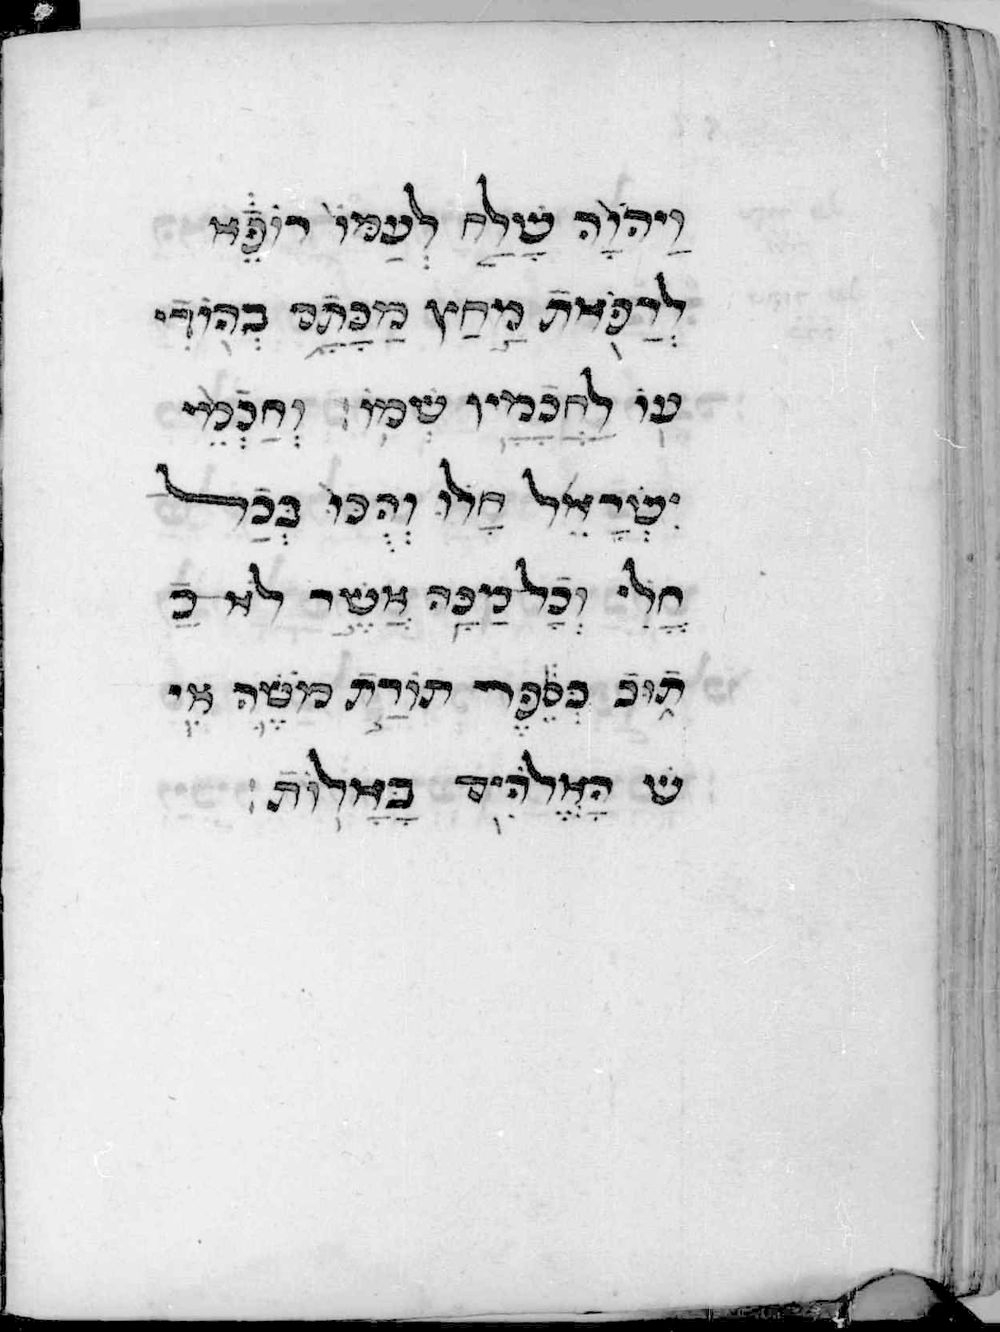 וַיהֹוָה שָׁלַח לְעַמּוֹ רוֹפֵא
לְרַפְּאֹת מַחַץ מַכָּתָם בְּהוֹדִי
עוֹ לַחֲכָמָיו שְׁמוֹ׃ וְחַכְמֵי
יִשְׂרָאֵל חָלוּ וְהֻכּוּ בְּכָל
חֳלִי וְכָל מַכָּה אֲשֶׁר לֹא כָ
תוּב בְּסֵפֶר תּוֹרַת מֹשֶׁה אִי
שׁ הָאֱלֹהִים בָּאָלוֹת׃